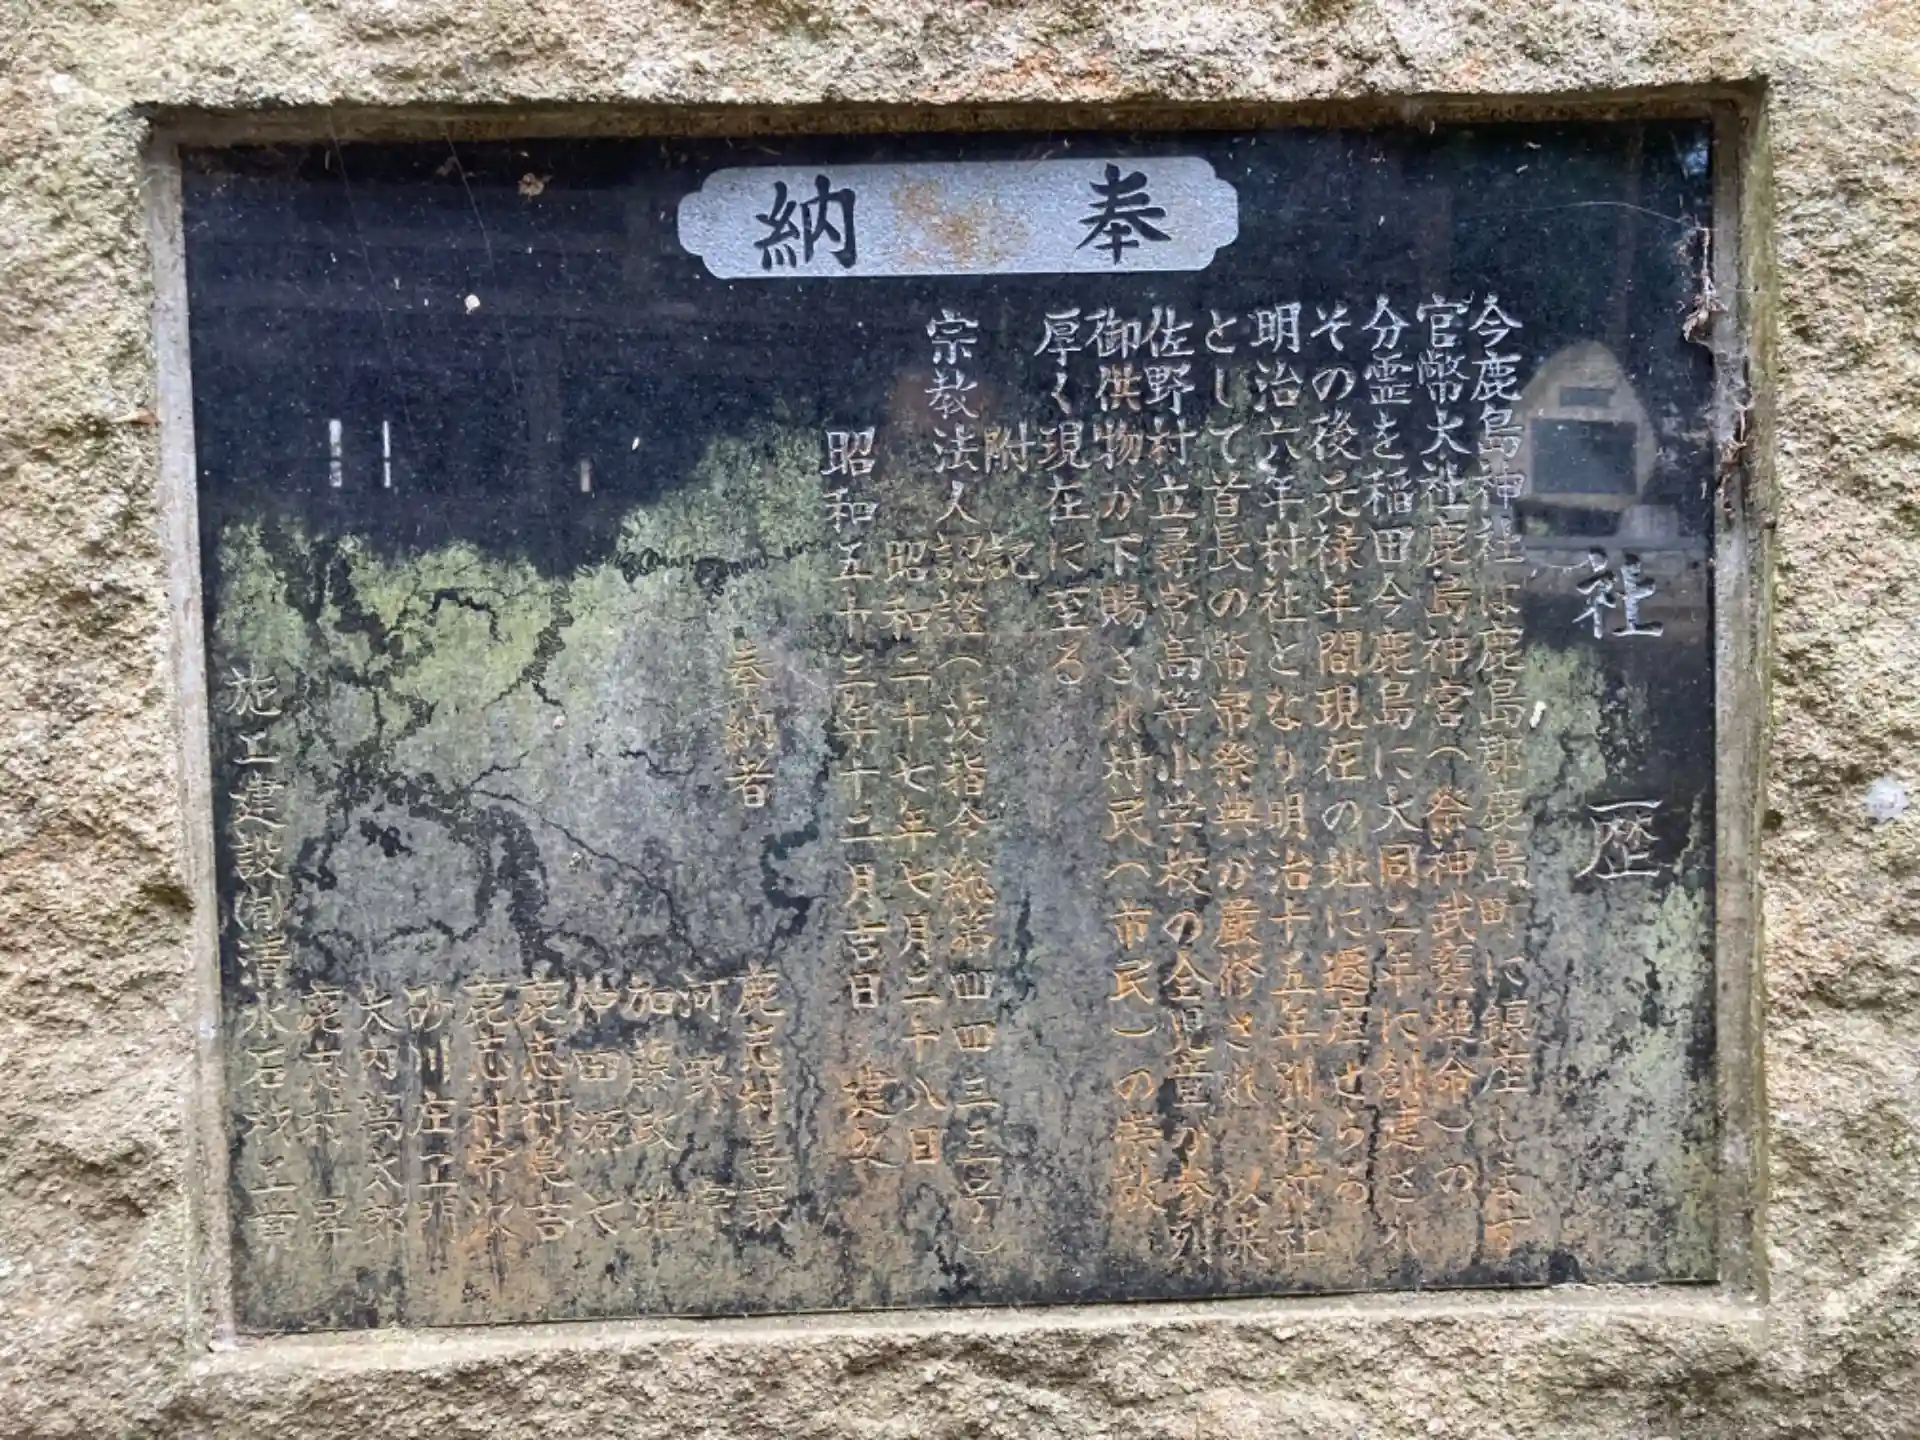 奉納
社歴
今鹿島神社は鹿島郡鹿島町に鎮座します
官幣大社鹿島神宮(祭神武甕槌命)の
分霊を稲田今鹿島に大同二年に創建され
その後元禄年間現在の地に遷座せらる
明治六年村社となり明治十五年別格村社
として首長の幣帛祭典が厳修され以来
佐野村立尋常高等小学校の全児童が参列
御供物が下賜され村民(市民)の崇敬
厚く現在に至る
附記
宗教法人認證(茨指令総第四四三三号)
昭和二十七年七月二十八日
昭和五十三年十二月吉日 建立
奉納者
鹿志村
河野
加藤政雄
仲田源
鹿志村亀吉
鹿志村常次
砂川庄
大内高太郎
鹿志村昇
施工建設(有)清水石材工首